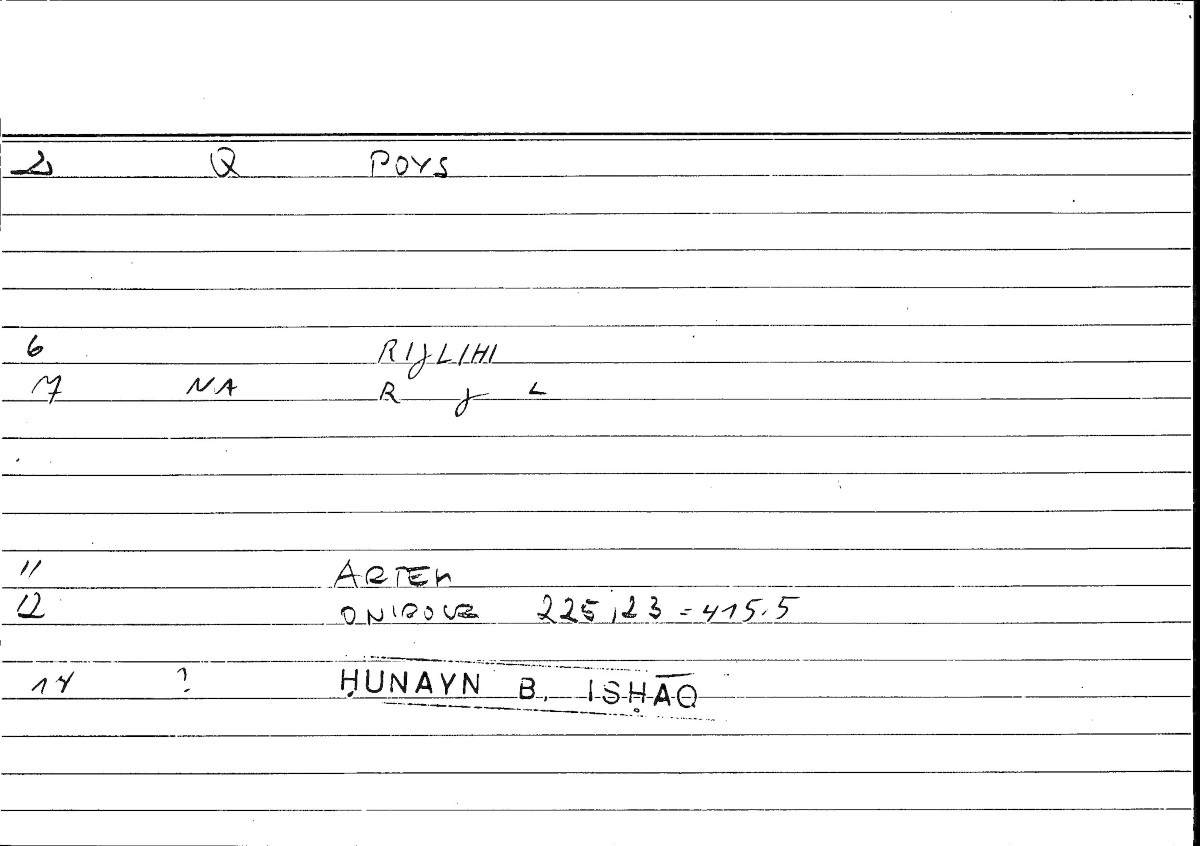 2 Q POYS
6 RIJLIHI
7 NA R J L
11 ARTEM
12 ONIROCR 225,23 = 415.5
14 ? ḤUNAYN B. ISḤĀQ